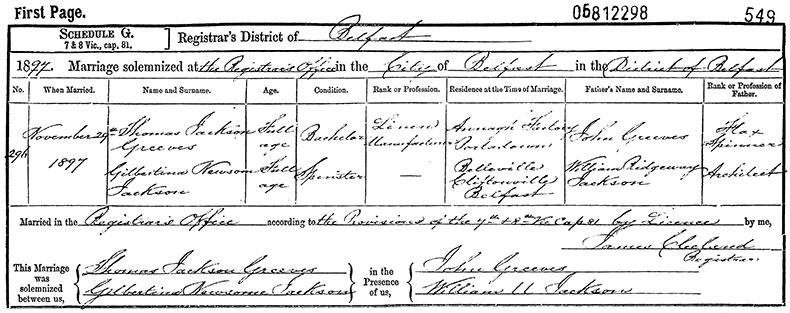 First Page.
05812298
549
SCHEDULE G.
7 & 8 Vic., cap. 81.
Registrar's District of Belfast
1897. Marriage solemnized at the Registrar's Office in the City of Belfast in the District of Belfast
No. When Married. Name and Surname. Age. Condition. Rank or Profession. Residence at the Time of Marriage. Father's Name and Surname. Rank or Profession of Father.
296 November 29th 1897
Thomas Jackson Greeves Full age Bachelor Linen Manufacturer Annagh Factory Portadown John Greeves Flax Spinner
Gilbertina Newsom Jackson Full age Spinster — Belleville Cliftonville Belfast William Ridgeway Jackson Architect
Married in the Registrar's Office according to the Provisions of the 7th & 8th Vic Cap 81 by Licence by me,
James Cleland
Registrar.
This Marriage was solemnized between us,
Thomas Jackson Greeves
Gilbertina Newsome Jackson
in the Presence of us,
John Greeves
William Jackson